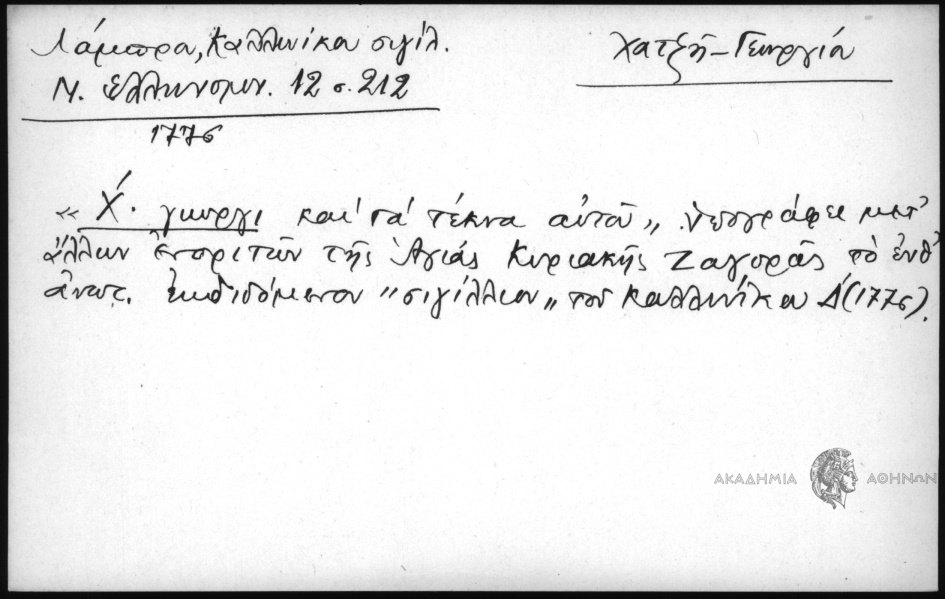 Λάμπρα, Καλλινίκου σιγίλ.
Χατζῆ-Γεωργίου
Ν. Ἑλληνομν. 12 σ. 212
1776
« Χ΄. γιωργι καὶ τὰ τέκνα αὐτοῦ„ ὑπογράφει μετ᾽
ἄλλων ἐνοριτῶν τῆς Ἁγίας Κυριακῆς Ζαγορᾶς τὸ ἐνθ᾽
ἀνωτ. ἐκδιδόμενον "σιγίλλιον„ τοῦ Καλλινίκου Δ΄(1776).
ΑΚΑΔΗΜΙΑ ΑΘΗΝΩΝ